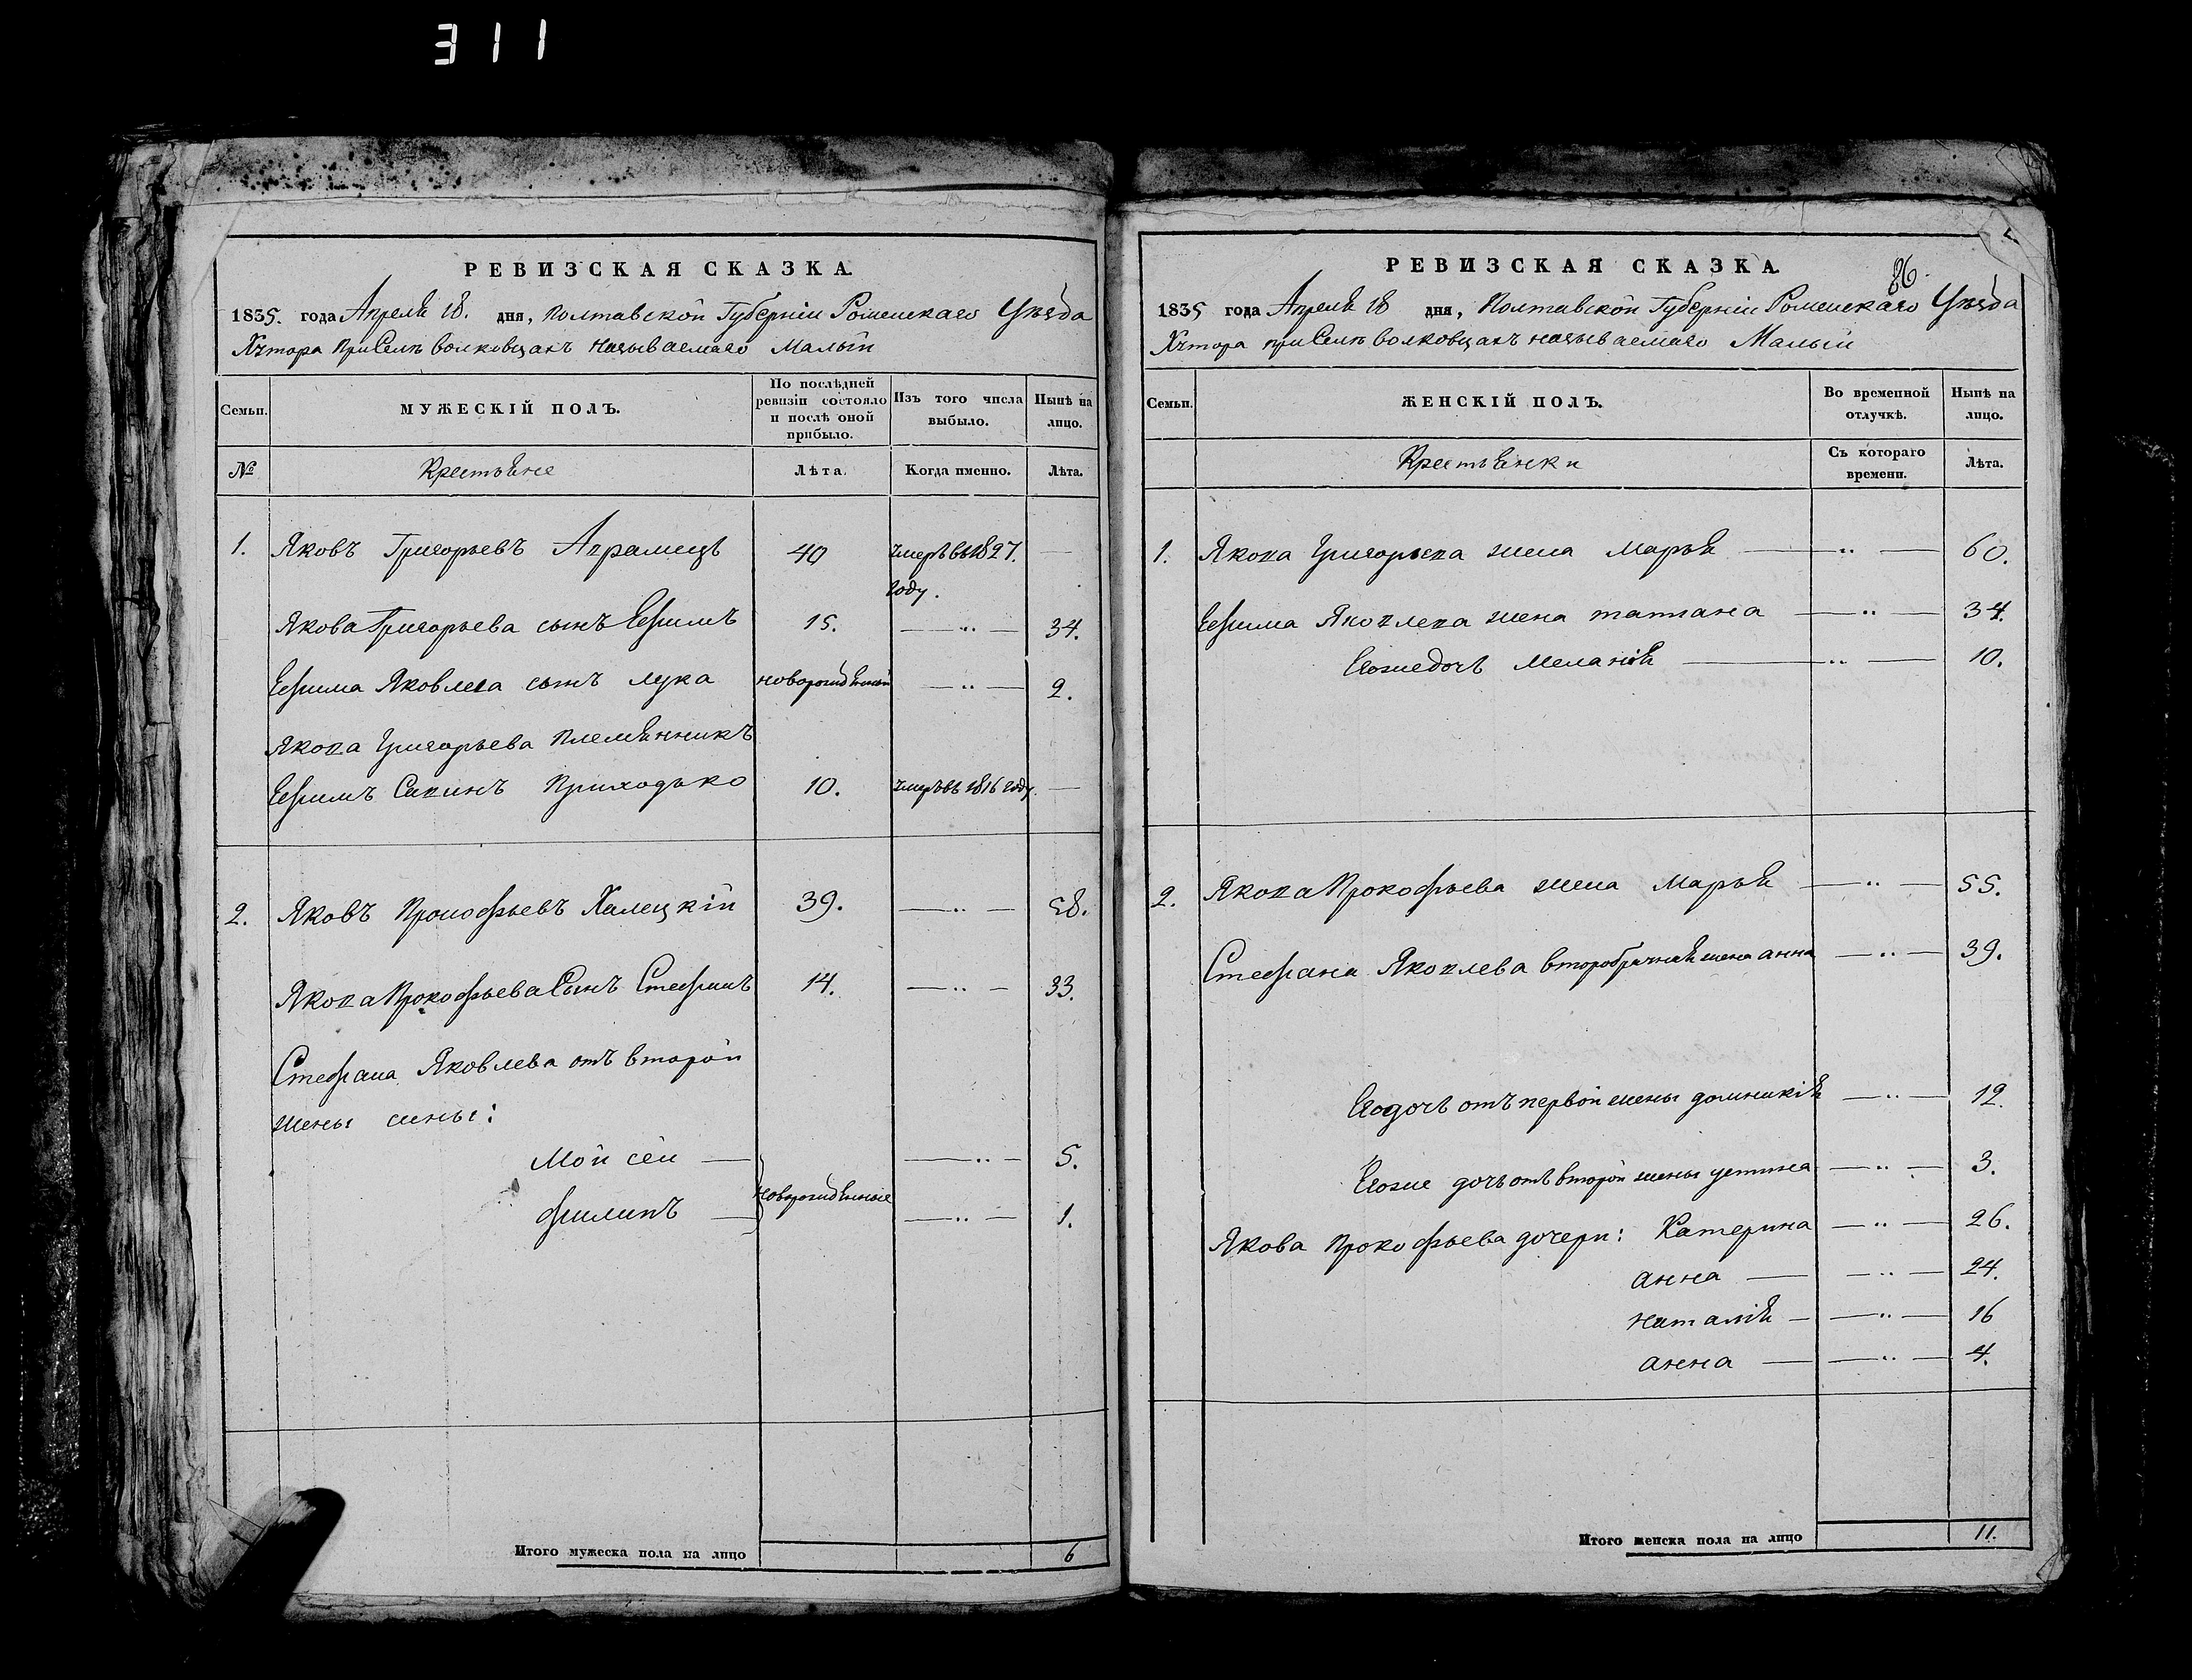 311
РЕВИЗСКАЯ СКАЗКА.
1835. года Апреля 18. дня, Полтавской Губернiи Роменскаго Уѣзда
Хутора при Селѣ Волковцахъ называемаго Малый
Семьи.
МУЖЕСКIЙ ПОЛЪ.
По послѣдней ревизiи состояло и послѣ оной прибыло.
Изъ того числа выбыло.
Нынѣ на лицо.
№
Крестьяне
Лѣта.
Когда именно.
Лѣта.
1. Яковъ Григорьевъ Авраменко 40 умеръ въ 1827. —
году.
Якова Григорьева сынъ Ефимъ 15. — „ — 34.
Ефима Яковлева сынъ лука новорожденный — „ — 2.
Якова Григорьева племянникъ
Ефимъ Савинъ Приходько 10. умеръ въ 1816 году. —
2. Яковъ Прокофьевъ Халецкiй 39. — „ — 58.
Якова Прокофьева Сынъ Стефанъ 14. — „ — 33.
Стефана Яковлева отъ второй
жены сины:
Мойсей — — „ — 5.
новорожденные
филипъ — — „ — 1.
Итого мужеска пола на лицо 6
РЕВИЗСКАЯ СКАЗКА.
86.
1835 года Апреля 18 дня, Полтавской Губернiи Роменскаго Уѣзда
Хутора при Селѣ Волковцахъ называемаго Малый
Семьи.
ЖЕНСКIЙ ПОЛЪ.
Во временной отлучкѣ.
Нынѣ на лицо.
Крестьянки
Съ котораго времени.
Лѣта.
1. Якова Григорьева жена Марья — „ — 60.
Ефима Яковлева жена татiана — „ — 34.
Егоже дочь Меланiя — „ — 10.
2. Якова Прокофьева жена Марья — „ — 55.
Стефана Яковлева второбрачная жена анна — „ — 39.
Его дочь отъ первой жены домникiя — „ — 12.
Егоже дочь отъ второй жены устина — „ — 3.
Якова Прокофьева дочери: Катерина — „ — 26.
анна — — „ — 24.
наталiя — — „ — 16
анна — — „ — 4.
Итого женска пола на лицо 11.